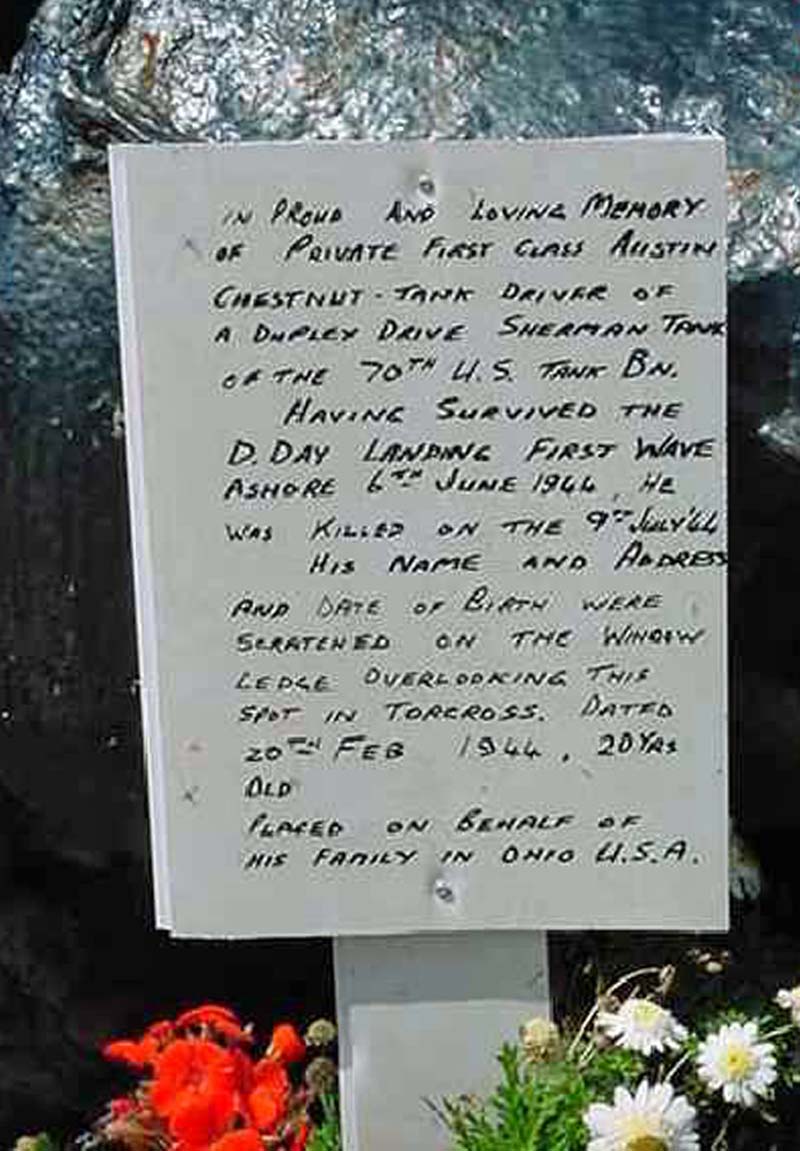 IN PROUD AND LOVING MEMORY
OF PRIVATE FIRST CLASS AUSTIN
CHESTNUT - TANK DRIVER OF
A DUPLEX DRIVE SHERMAN TANK
OF THE 70TH U.S. TANK BN.
HAVING SURVIVED THE
D.DAY LANDING FIRST WAVE
ASHORE 6TH JUNE 1944, HE
WAS KILLED ON THE 9TH JULY'44
HIS NAME AND ADDRESS
AND DATE OF BIRTH WERE
SCRATCHED ON THE WINDOW
LEDGE OVERLOOKING THIS
SPOT IN TORCROSS. DATED
20TH FEB 1944, 20 YRS
OLD
PLACED ON BEHALF OF
HIS FAMILY IN OHIO U.S.A.